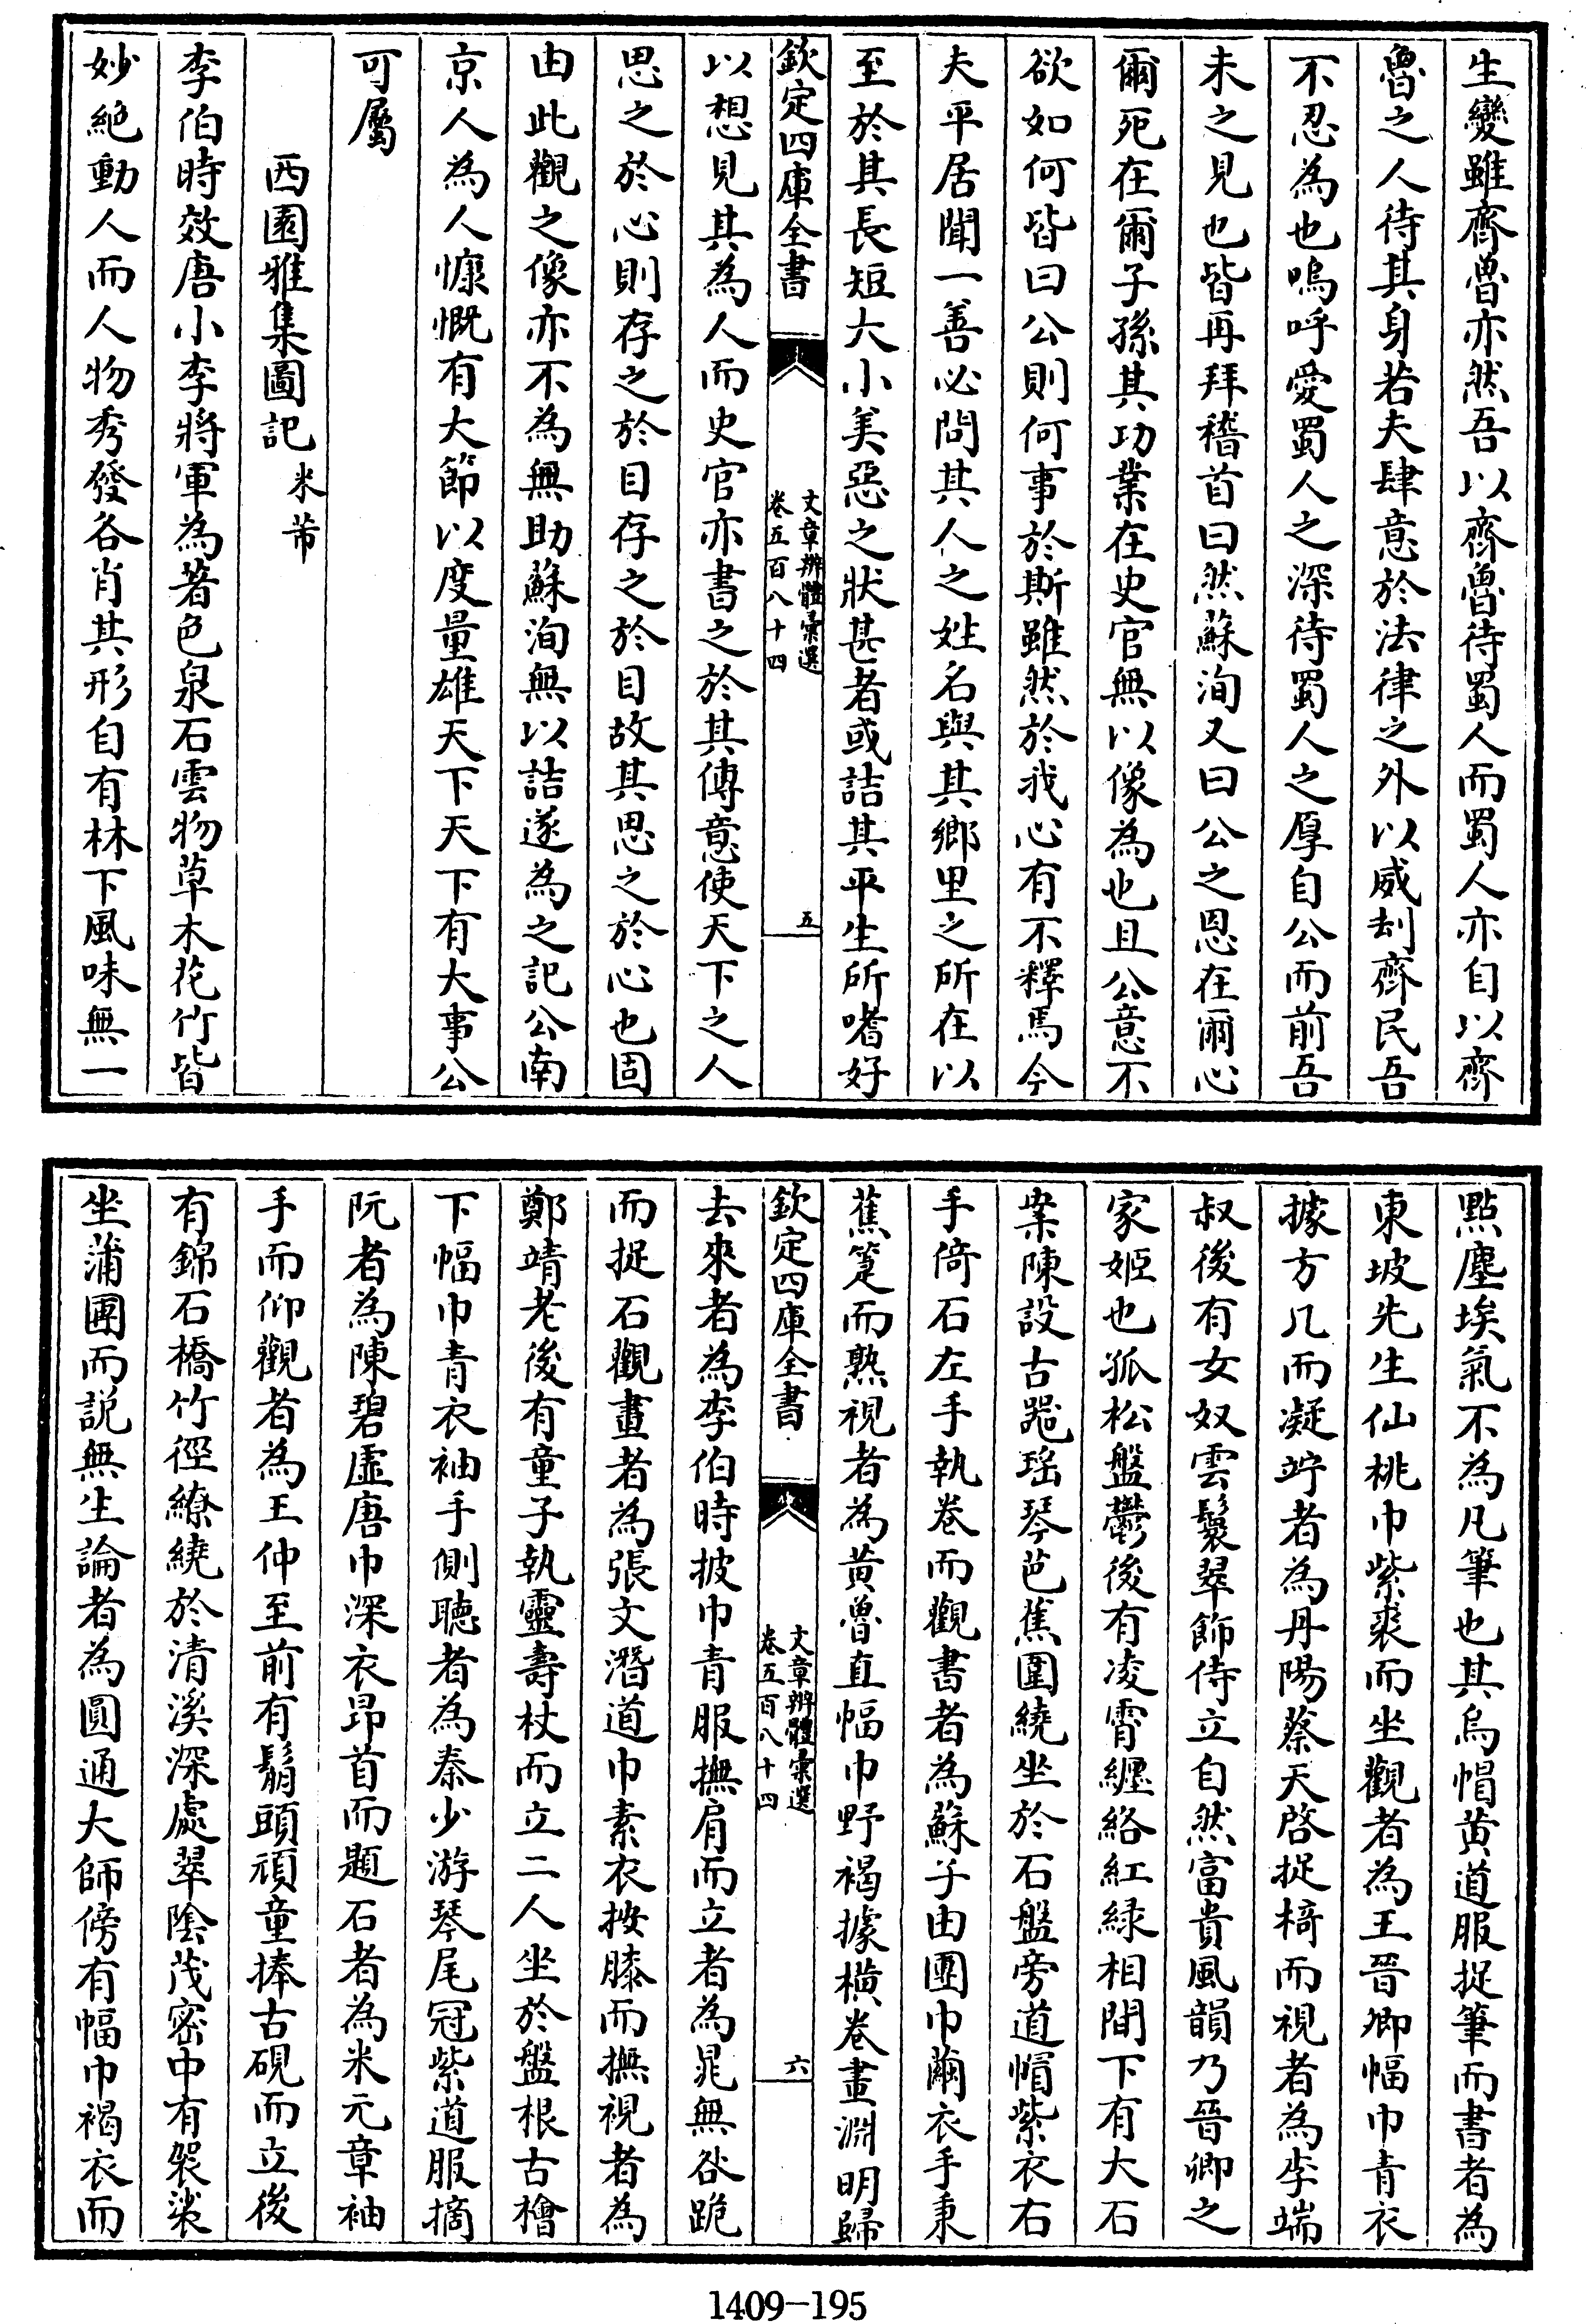 生變雖齊魯亦然吾以齊魯待蜀人而蜀人亦自以齊
魯之人待其身若夫肆意於法律之外以威刦齊民吾
不忍為也嗚呼愛蜀人之深待蜀人之厚自公而前吾
未之見也皆再拜稽首曰然蘇洵又曰公之恩在爾心
爾死在爾子孫其功業在史官無以像為也且公意不
欲如何皆曰公則何事於斯雖然於我心有不釋焉今
夫平居聞一善必問其人之姓名與其鄉里之所在以
至於其長短大小美惡之狀甚者或詰其平生所嗜好
欽定四庫全書
文章辨體彙選
卷五百八十四
五
以想見其為人而史官亦書之於其傳意使天下之人
思之於心則存之於目存之於目故其思之於心也固
由此觀之像亦不為無助蘇洵無以詰遂為之記公南
京人為人慷慨有大節以度量雄天下天下有大事公
可屬
西園雅集圖記 米芾
李伯時效唐小李將軍為著色泉石雲物草木花竹皆
妙絶動人而人物秀發各肖其形自有林下風味無一
點塵埃氣不為凡筆也其烏帽黄道服捉筆而書者為
東坡先生仙桃巾紫裘而坐觀者為王晉卿幅巾青衣
據方几而凝竚者為丹陽蔡天啓捉椅而視者為李端
叔後有女奴雲鬟翠飾侍立自然富貴風韻乃晉卿之
家姬也孤松盤鬱後有凌霄纒絡紅緑相間下有大石
案陳設古器瑶琴芭蕉圍繞坐於石盤旁道帽紫衣右
手倚石左手執卷而觀書者為蘇子由團巾繭衣手秉
蕉箑而熟視者為黄魯直幅巾野褐據横卷畫淵明歸
欽定四庫全書
文章辨體彙選
卷五百八十四
六
去來者為李伯時披巾青服撫肩而立者為晁無咎跪
而捉石觀畫者為張文潛道巾素衣按膝而撫視者為
鄭靖老後有童子執靈壽杖而立二人坐於盤根古檜
下幅巾青衣袖手側聽者為秦少游琴尾冠紫道服摘
阮者為陳碧虚唐巾深衣昂首而題石者為米元章袖
手而仰觀者為王仲至前有鬅頭頑童捧古硯而立後
有錦石橋竹徑繚繞於清溪深處翠陰茂密中有袈裟
坐蒲團而説無生論者為圓通大師傍有幅巾褐衣而
1409-195